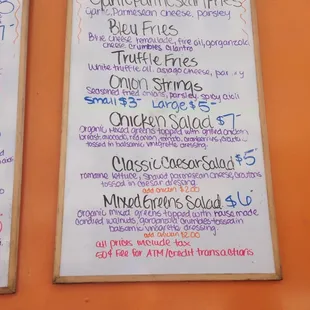 Garlic Parmesan Fries
Garlic, Parmesan cheese, parsley
Bleu Fries
Blue cheese remoulade, fire oil, gorgonzola
cheese crumbles, cilantro
Truffle Fries
white truffle oil, asiago cheese,
Onion Strings
Seasoned fried onions, parsley, spicy aioli
Small $3- Large $5-
Chicken Salad $7-
Organic mixed greens topped with grilled chicken
breast, avocado,
tossed in balsamic vinaigrette dressing.
Classic Caesar Salad $5-
romaine lettuce, shaved parmesan cheese, croutons
tossed in caesar dressing.
add chicken $2.00
Mixed Greens Salad $6
Organic mixed greens topped with housemade
candied walnuts, gorgonzola crumbles tossed in
balsamic vinaigrette dressing.
add chicken $2.00
all prices include tax
50¢ Fee for ATM/credit transactions